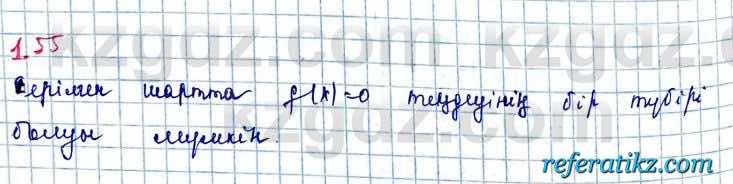 1.55
Берілген шартта f(x)=0 теңдеуінің бір түбірі
болуы мүмкін.
kzgdz.com kzgdz.com
kzgdz.com
referatikz.com